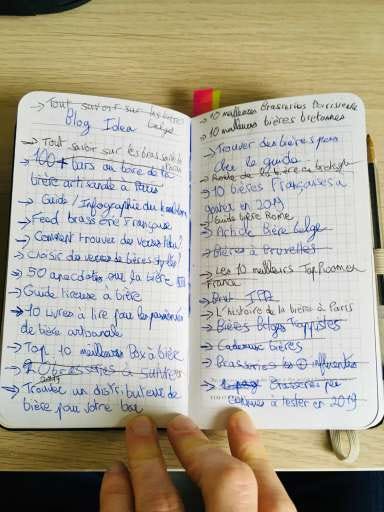 → Tout savoir sur les bières belges
Blog Idea
→ Tout savoir sur les brasseries
→ 100 + bars où boire de la
bière artisanale à Paris
→ Guide / Infographie du
→ Feed brasserie Française
→ Comment trouver des verres
→ choisir des verres de bières
→ 50 anecdotes sur la bière
→ Guide licence à bière
→ 10 Livres à lire pour les passionnés
de bière artisanale
→ Top 10 meilleures Box à bière
→ 7 brasseries à suivre
2019
→ Trouver un distributeur de
bière pour votre bar
→ 10 meilleures Brasseries Parisienne
→ 10 meilleures bières bretonnes
→ Trouver des bières pas
cher le guide
→ Route de la bière en
→ 10 bières Françaises à
goûter en 2019
→ Guide bière Rome
→ Article Bière belge
→ Bières à Bruxelles
→ Les 10 meilleurs Tap Room en
France
→ IPA
→ L'histoire de la bière à Paris
→ Bières Belges Trappistes
→ Cadeaux bières
→ Brasseries les + influentes
→ Brasseries peu
connues à tester en 2019